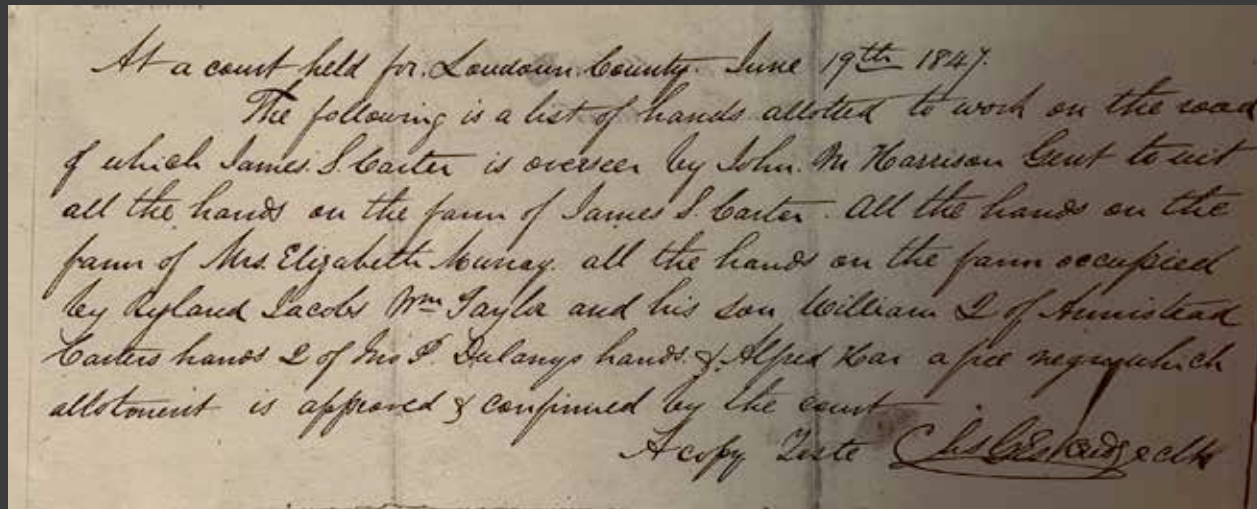 At a court held for Loudoun County. June 19th 1847.
The following is a list of hands allotted to work on the road
of which James. S. Carter is overseer by John. M Harrison Gent to wit
all the hands on the farm of James S. Carter. All the hands on the
farm of Mrs. Elizabeth Murray. all the hands on the farm occupied
by Ryland Jacobs Wm Taylor and his son William 2 of Armistead
Carters hands 2 of Jno P. Dulanys hands & Alfred a free negro which
allotment is approved & confirmed by the court
A copy Teste Chs G Eskridge clk